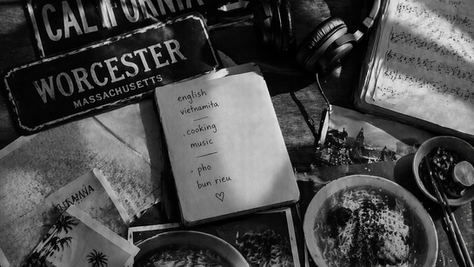 CALIFORNIA
WORCESTER
MASSACHUSETTS
english
vietnamita
cooking
music
. pho
bun rieu
♡